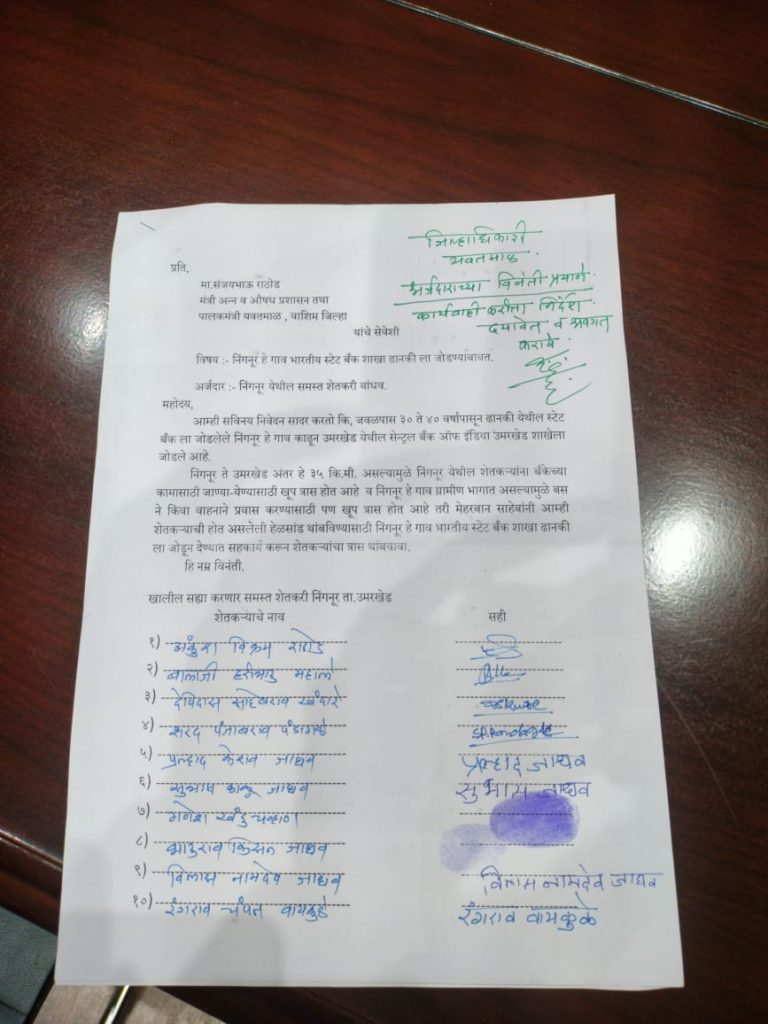 जिल्हाधिकारी
यवतमाळ.
अर्जदाराच्या विनंती प्रमाणे
कार्यवाही करीता निर्देश
द्यावेत व अवगत
करावे
प्रति,
मा.संजयभाऊ राठोड
मंत्री अन्न व औषध प्रशासन तथा
पालकमंत्री यवतमाळ , वाशिम जिल्हा
यांचे सेवेशी
विषय :- निंगनूर हे गाव भारतीय स्टेट बँक शाखा ढानकी ला जोडण्याबाबत.
अर्जदार :- निंगनूर येथील समस्त शेतकरी बांधव.
महोदय,
आम्ही सविनय निवेदन सादर करतो कि, जवळपास ३० ते ४० वर्षापासून ढानकी येथील स्टेट
बँक ला जोडलेले निंगनूर हे गाव काढून उमरखेड येथील सेन्ट्रल बँक ऑफ इंडिया उमरखेड शाखेला
जोडले आहे.
निंगनूर ते उमरखेड अंतर हे ३५ कि.मी. असल्यामुळे निंगनूर येथील शेतकऱ्यांना बँकेच्या
कामासाठी जाण्या-येण्यासाठी खूप त्रास होत आहे व निंगनूर हे गाव ग्रामीण भागात असल्यामुळे बस
ने किंवा वाहनाने प्रवास करण्यासाठी पण खूप त्रास होत आहे तरी मेहरबान साहेबांनी आम्ही
शेतकऱ्याची होत असलेली हेळसांड थांबविण्यासाठी निंगनूर हे गाव भारतीय स्टेट बँक शाखा ढानकी
ला जोडून देण्यात सहकार्य करून शेतकऱ्यांचा त्रास थांबवावा.
हि नम्र विनंती.
खालील सह्या करणार समस्त शेतकरी निंगनूर ता.उमरखेड
शेतकऱ्याचे नाव सही
१) अंकुश विक्रम राठोड
२) बालाजी हरीभाऊ महाले
३) देविदास साहेबराव खंदारे
४) शरद पंजाबराव
५) प्रल्हाद केशव जाधव प्रल्हाद जाधव
६) सुभाष जाधव सुभाष जाधव
७) गणेश खंडु चव्हाण
८) भाऊराव किसन जाधव
९) विलास नामदेव जाधव विलास नामदेव जाधव
१०) रंगराव चंपत वायकुळे रंगराव वायकुळे